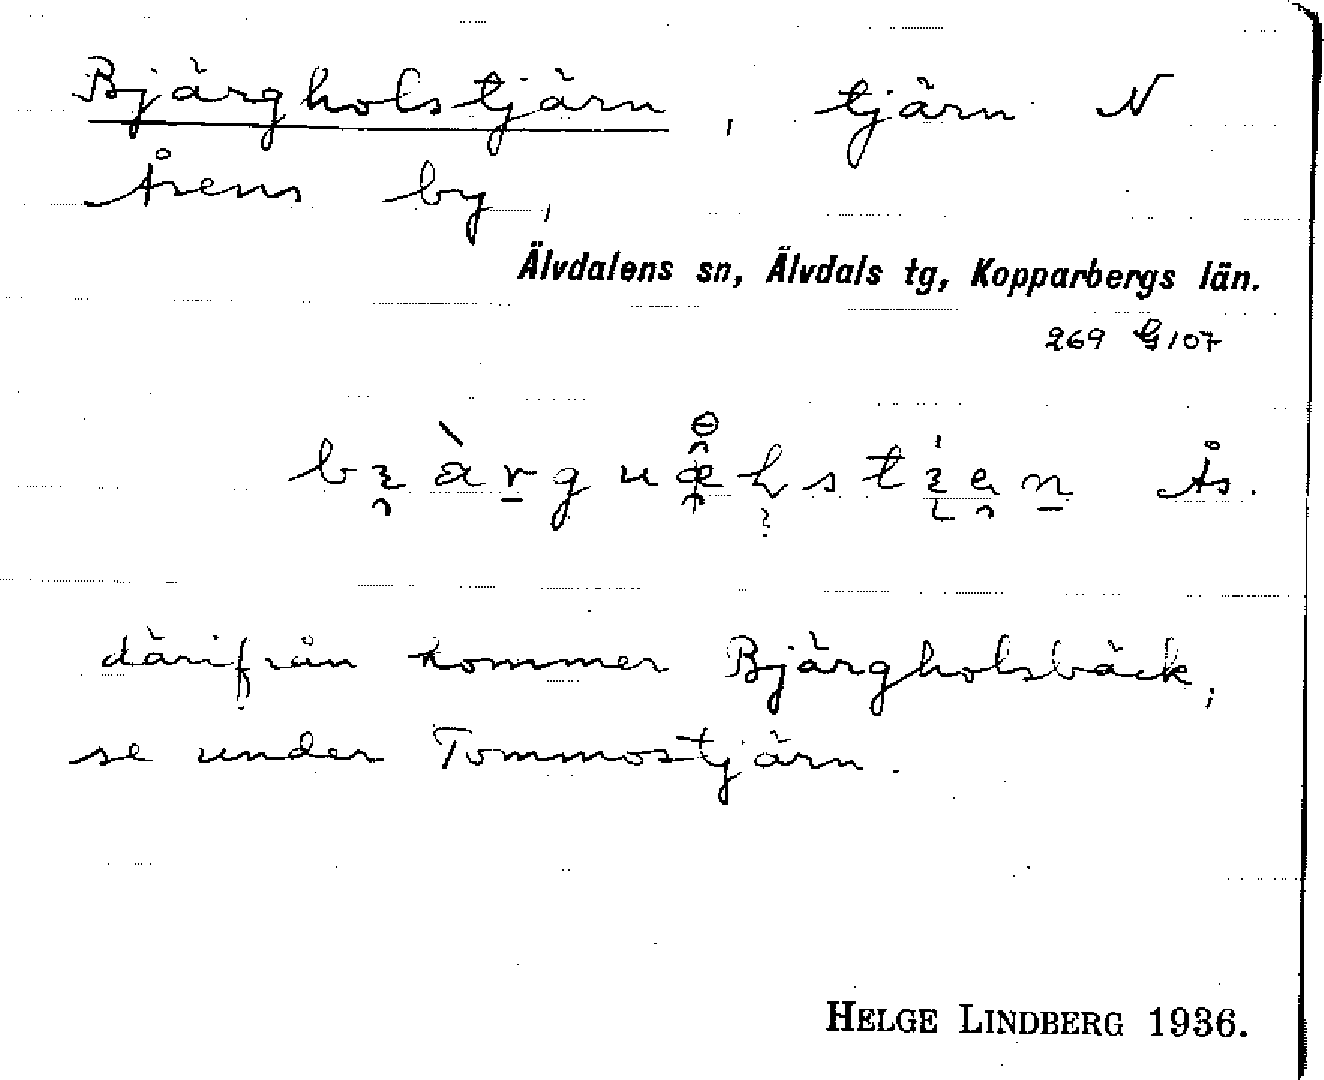 Bjärgholstjärn, tjärn N
Åsens by,
Älvdalens sn, Älvdals tg, Kopparbergs län.
269 G 107
Ås.
därifrån kommer Bjärgholsbäck,
se under Tommostjärn.
HELGE LINDBERG 1936.